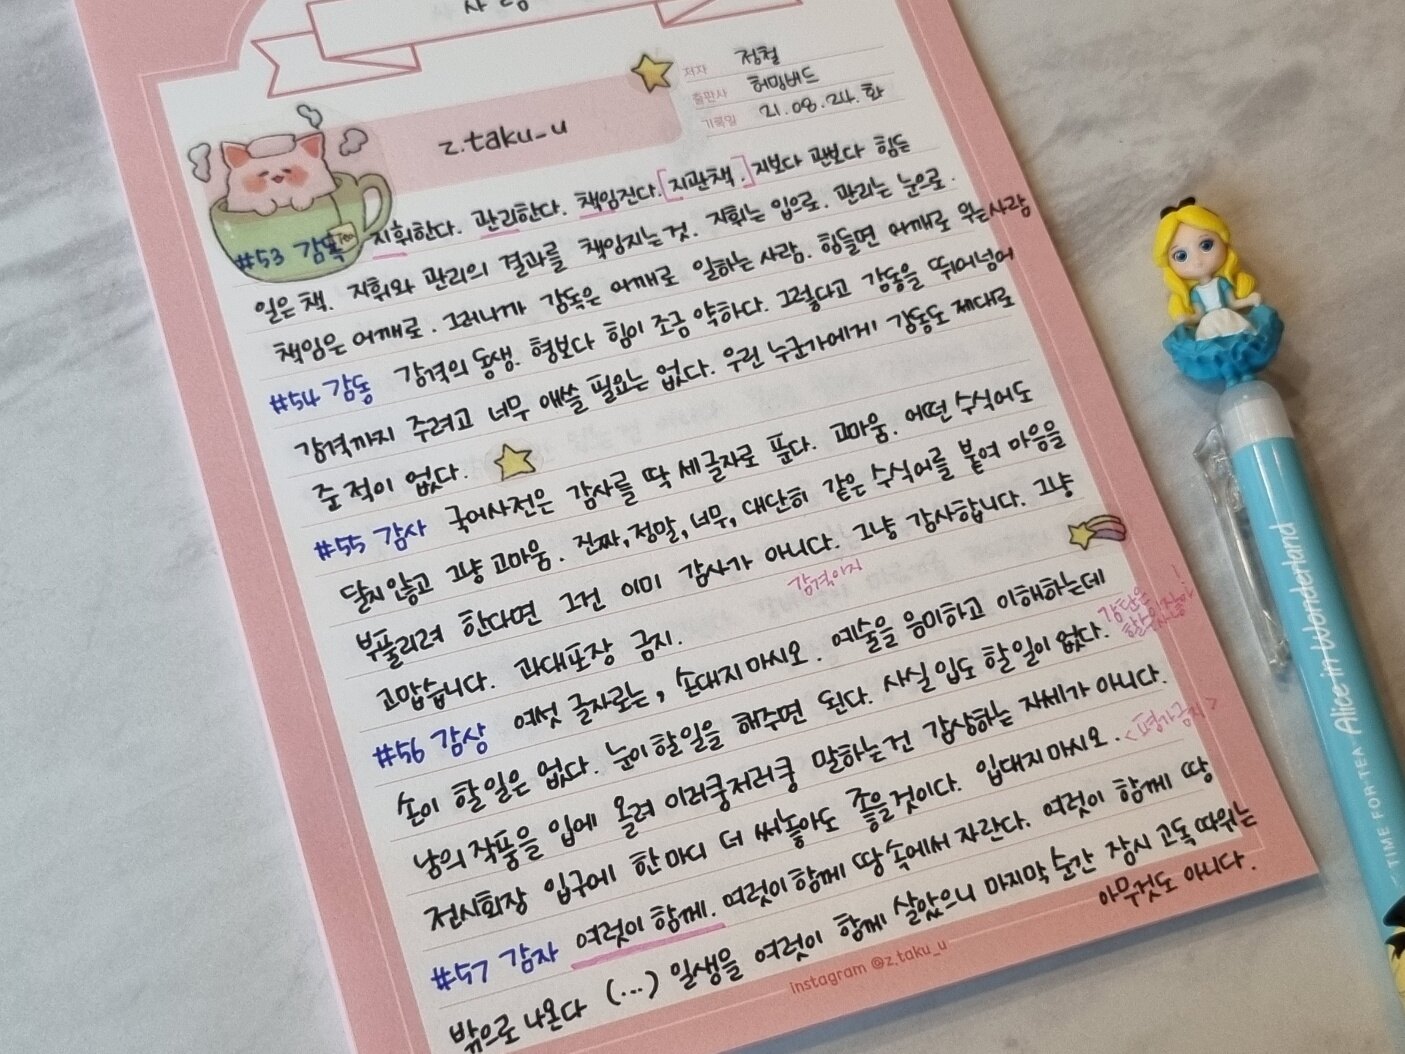 사람
저자 정철
출판사 허밍버드
기록일 21.08.24.화
z.taku_u
Tea
#53 감독 지휘한다. 관리한다. 책임진다. [지관책.] 지보다 관보다 힘든
일은 책. 지휘와 관리의 결과를 책임지는 것. 지휘는 입으로. 관리는 눈으로.
책임은 어깨로. 그러니까 감독은 어깨로 일하는 사람. 힘들면 어깨로 우는 사람
#54 감동 감격의 동생. 형보다 힘이 조금 약하다. 그렇다고 감동을 뛰어넘어
감격까지 주려고 너무 애쓸 필요는 없다. 우린 누군가에게 감동도 제대로
준 적이 없다.
#55 감사 국어사전은 감사를 딱 세글자로 푼다. 고마움. 어떤 수식어도
달지 않고 그냥 고마움. 진짜, 정말, 너무, 대단히 같은 수식어를 붙여 마음을
부풀리려 한다면 그건 이미 감사가 아니다. 그냥 감사합니다. 그냥
감격이지
고맙습니다. 과대포장 금지.
#56 감상 여섯 글자로는, 손대지 마시오. 예술을 음미하고 이해하는데
손이 할 일은 없다. 눈이 할 일을 해주면 된다. 사실 입도 할 일이 없다.
남의 작품을 입에 올려 이러쿵저러쿵 말하는 건 감상하는 자세가 아니다.
전시회장 입구에 한마디 더 써놓아도 좋을 것이다. 입대지 마시오. <평가금지>
#57 감자 여럿이 함께. 여럿이 함께 땅 속에서 자란다. 여럿이 함께 땅
밖으로 나온다 (...) 일생을 여럿이 함께 살았으니 마지막 순간 잠시 고독 따위는
아무것도 아니다.
instagram @z.taku_u
TIME FOR TEA Alice in Wonderland